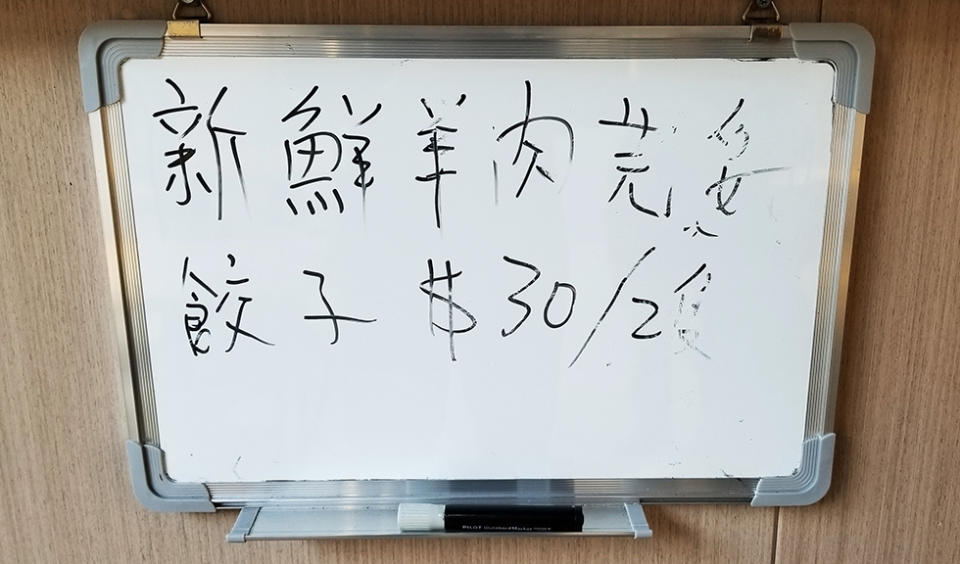 新鮮羊肉芫荽
餃子 $30/2隻
PILOT WhiteboardMarker